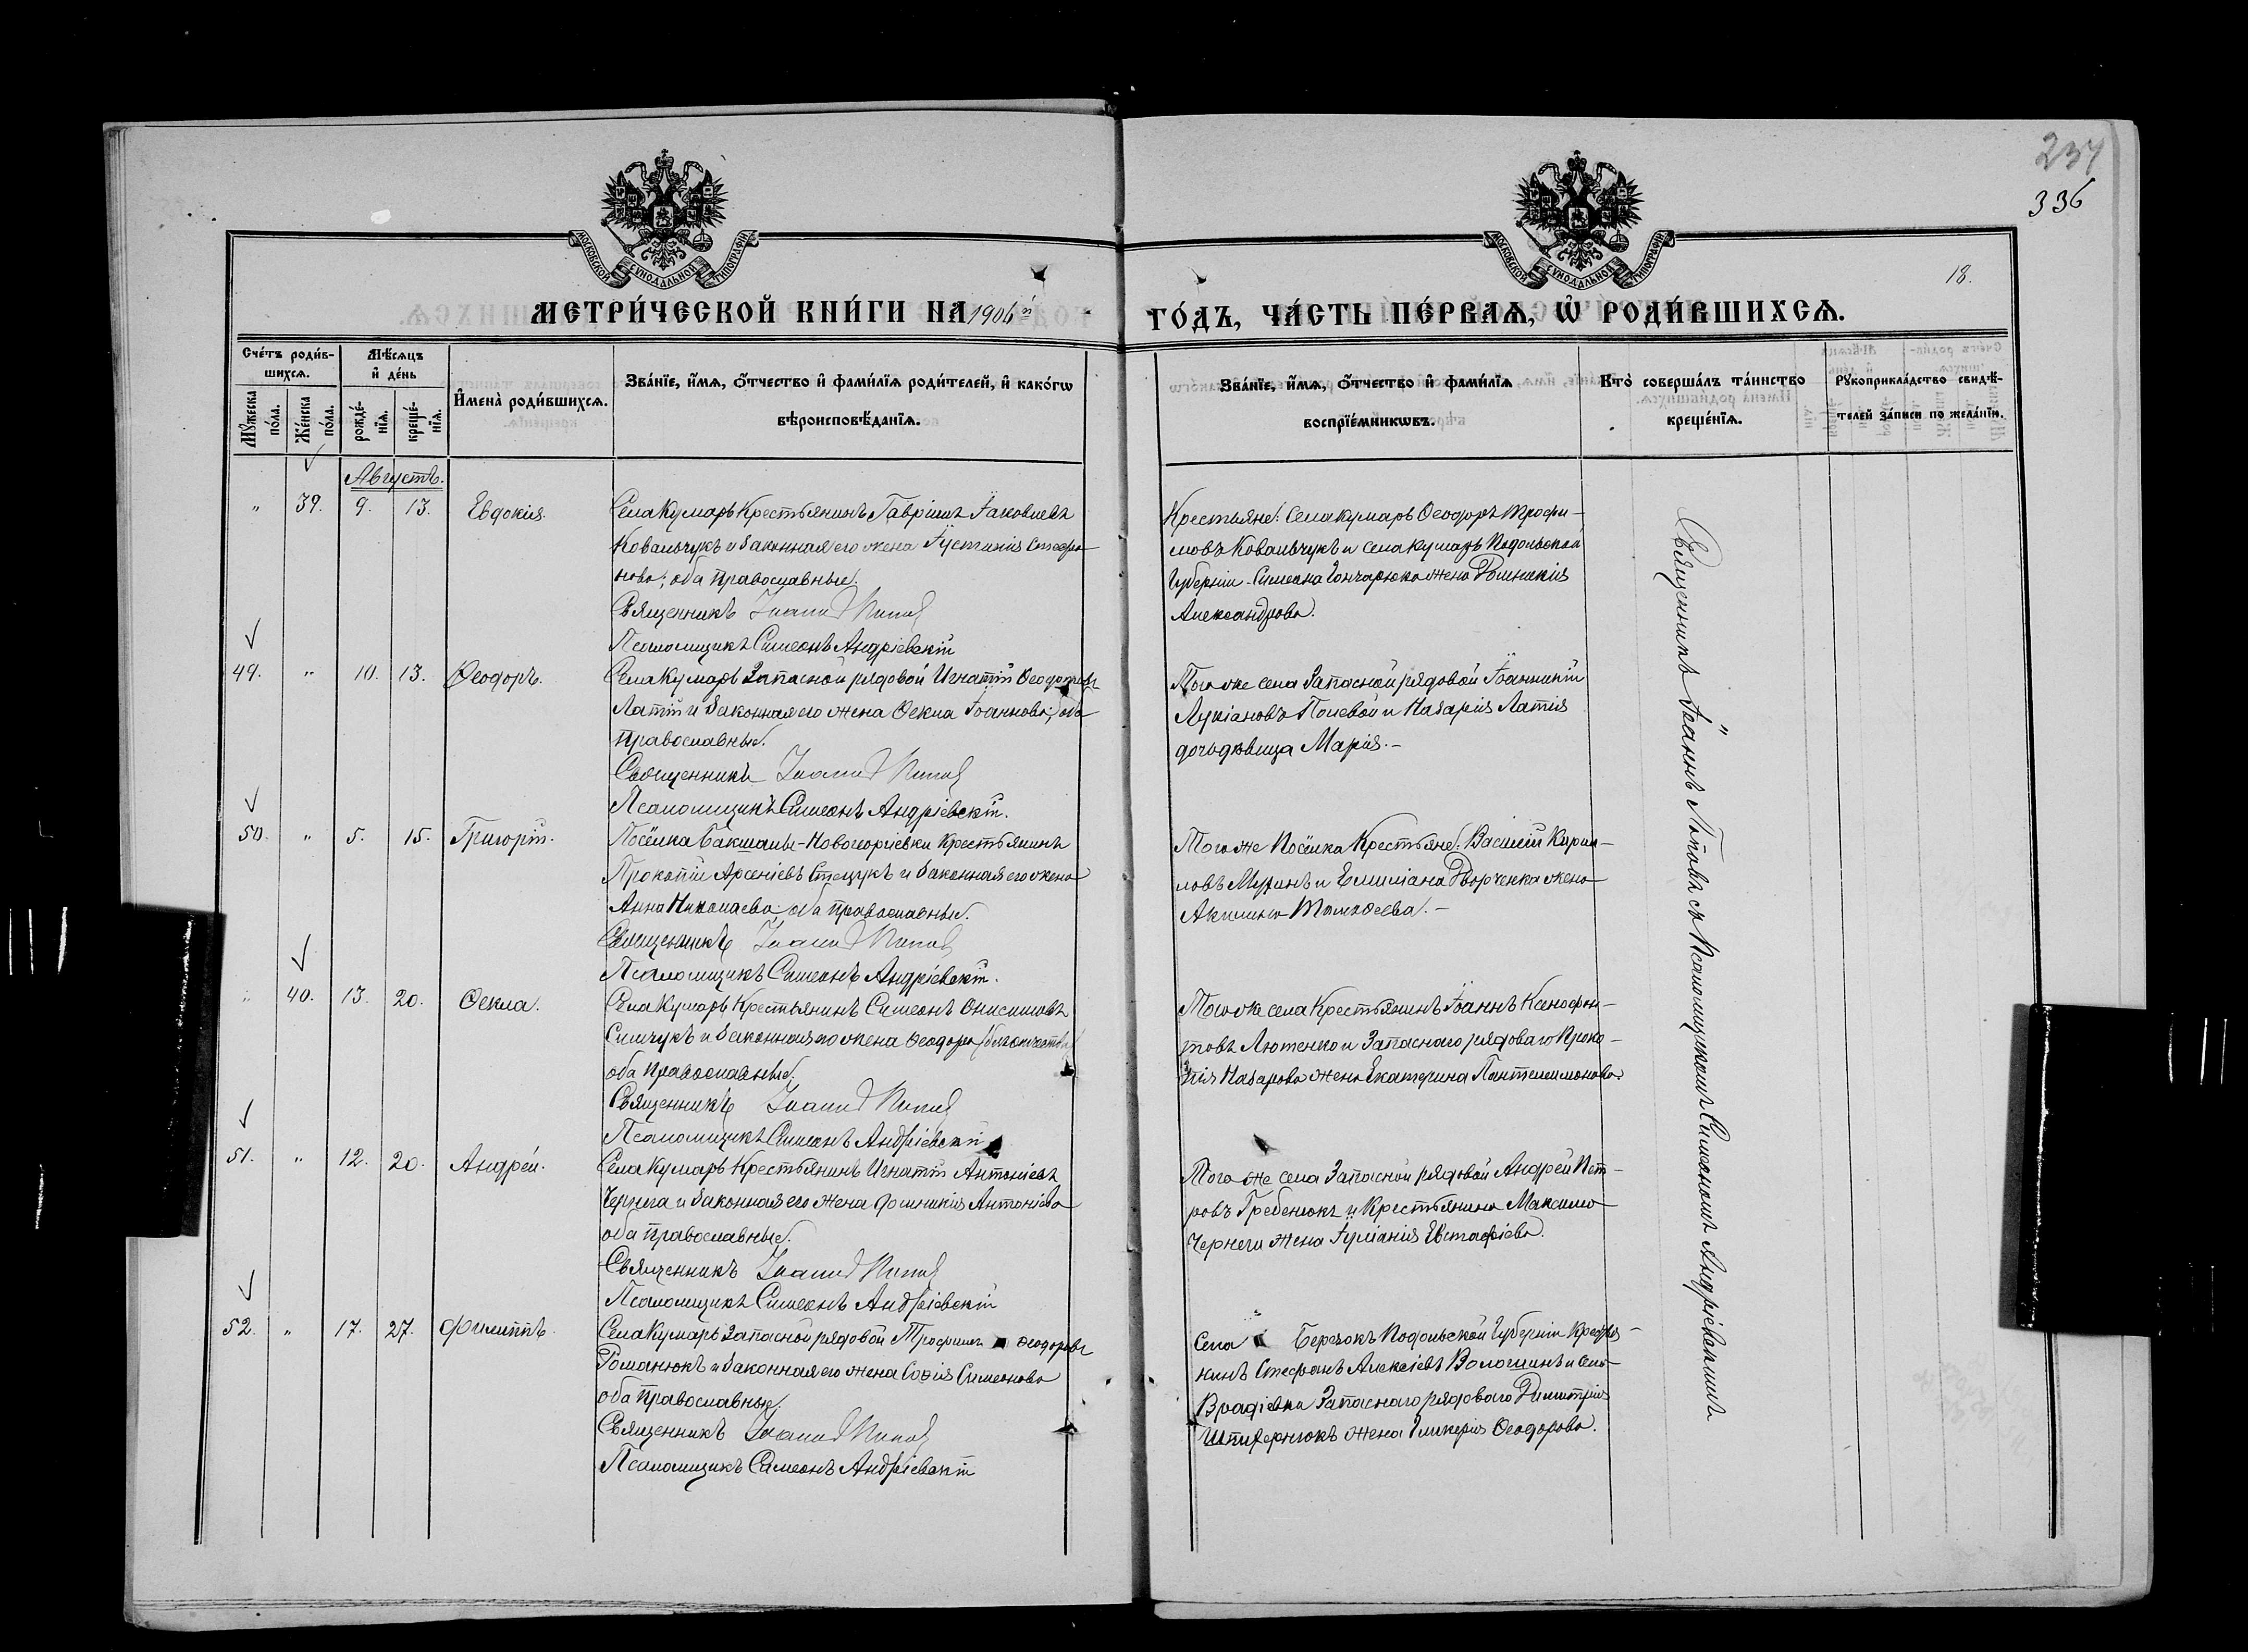 234
336
18.
МОСКОВСКОЙ СѴНОДАЛЬНОЙ ТИПОГРАФІИ
МОСКОВСКОЙ СѴНОДАЛЬНОЙ ТИПОГРАФІИ
МЕТРИ́ЧЕСКОЙ КНИ́ГИ НА 1906й
ГО́ДЪ, ЧА́СТЬ ПЕ́РВАѦ, Ѡ҆ РОДИ́ВШИХСѦ.
Сче́тъ роди́в-
шихсѧ.
Мꙋ́жеска по́ла.
Же́нска по́ла.
Мѣ́сѧцъ
и҆ де́нь
рожде́-
нїѧ.
креще́-
нїѧ.
И҆мена̀ роди́вшихсѧ.
Зва́нїе, и҆́мѧ, ѻ҆́тчество и҆ фами́лїѧ роди́телей, и҆ како́гѡ
вѣроисповѣ́данїѧ.
Зва́нїе, и҆́мѧ, ѻ҆́тчество и҆ фами́лїѧ
воспрїе́мникѡвъ.
Кто̀ соверша́лъ та́инство
креще́нїѧ.
Рꙋкоприкла́дство свидѣ́-
телей за́писи по жела́нїю.
Августъ.
" 39. 9. 13. Евдокія.
Села Кумаръ Крестьянинъ Гавріилъ Іаковлевъ
Ковальчукъ и законная его жена Іустинія Стефа-
нова; оба православные.
Священникъ Іоаннъ Поповъ
Псаломщикъ Симеонъ Андріевскій
Крестьяне: Села Кумаръ Ѳеодоръ Трофи-
мовъ Ковальчукъ и села Кумаръ Подольской
Губерніи Симеона Гончарюка жена Домникія
Александрова.
49. " 10. 13. Ѳеодоръ.
Села Кумаръ Запасной рядовой Игнатій Ѳеодоровъ
Латій и законная его жена Ѳекла Іоаннова; оба
православные.
Священникъ Іоаннъ Поповъ
Псаломщикъ Симеонъ Андріевскій.
Того же села Запасной рядовой Іоанникій
Лукіановъ Полевой и Назарія Латія
дочь дѣвица Марія.-
50. " 5. 15. Григорій.
Посёлка Бакшалы-Новогоріевки Крестьянинъ
Прокопій Арсеніевъ Стецукъ и законная его жена
Анна Николаева; оба православные.
Священникъ Іоаннъ Поповъ
Псаломщикъ Симеонъ Андріевскій.
Того же Посёлка Крестьяне: Василій Кирил-
ловъ и Емиліана Дворченка жена
Акилина Тимоѳеева.-
" 40. 13. 20. Ѳекла.
Села Кумаръ Крестьянинъ Симеонъ Онисимовъ
Симчукъ и законная его жена Ѳеодора
оба православные.
Священникъ Іоаннъ Поповъ
Псаломщикъ Симеонъ Андріевскій
Того же села Крестьянинъ Іоаннъ Ксенофон-
товъ Лютенко и Запаснаго рядоваго Проко-
пія Назарова жена Екатерина Пантелеимонова.
51. " 12. 20. Андрей.
Села Кумаръ Крестьянинъ Игнатій Антоніевъ
Чернега и законная его жена Домникія Антоніева
оба православные.
Священникъ Іоаннъ Поповъ
Псаломщикъ Симеонъ Андріевскій
Того же села Запасной рядовой Андрей Пет-
ровъ Гребенюкъ и Крестьянина Максима
Чернеги жена Іуліанія Евстафіева.
52. " 17. 27. Филиппъ.
Села Кумаръ Запасной рядовой Трофимъ Ѳеодоровъ
Романюкъ и законная его жена Софія Симеонова
оба православные.
Священникъ Іоаннъ Поповъ
Псаломщикъ Симеонъ Андріевскій
Села Березокъ Подольской Губерніи Крестья-
нинъ Стефанъ Алексіевъ Волошинъ и села
Врадіевки Запаснаго рядоваго Димитрія
жена Гликерія Ѳеодорова.
Священникъ Іоаннъ Поповъ съ Псаломщикомъ Симеономъ Андріевскимъ